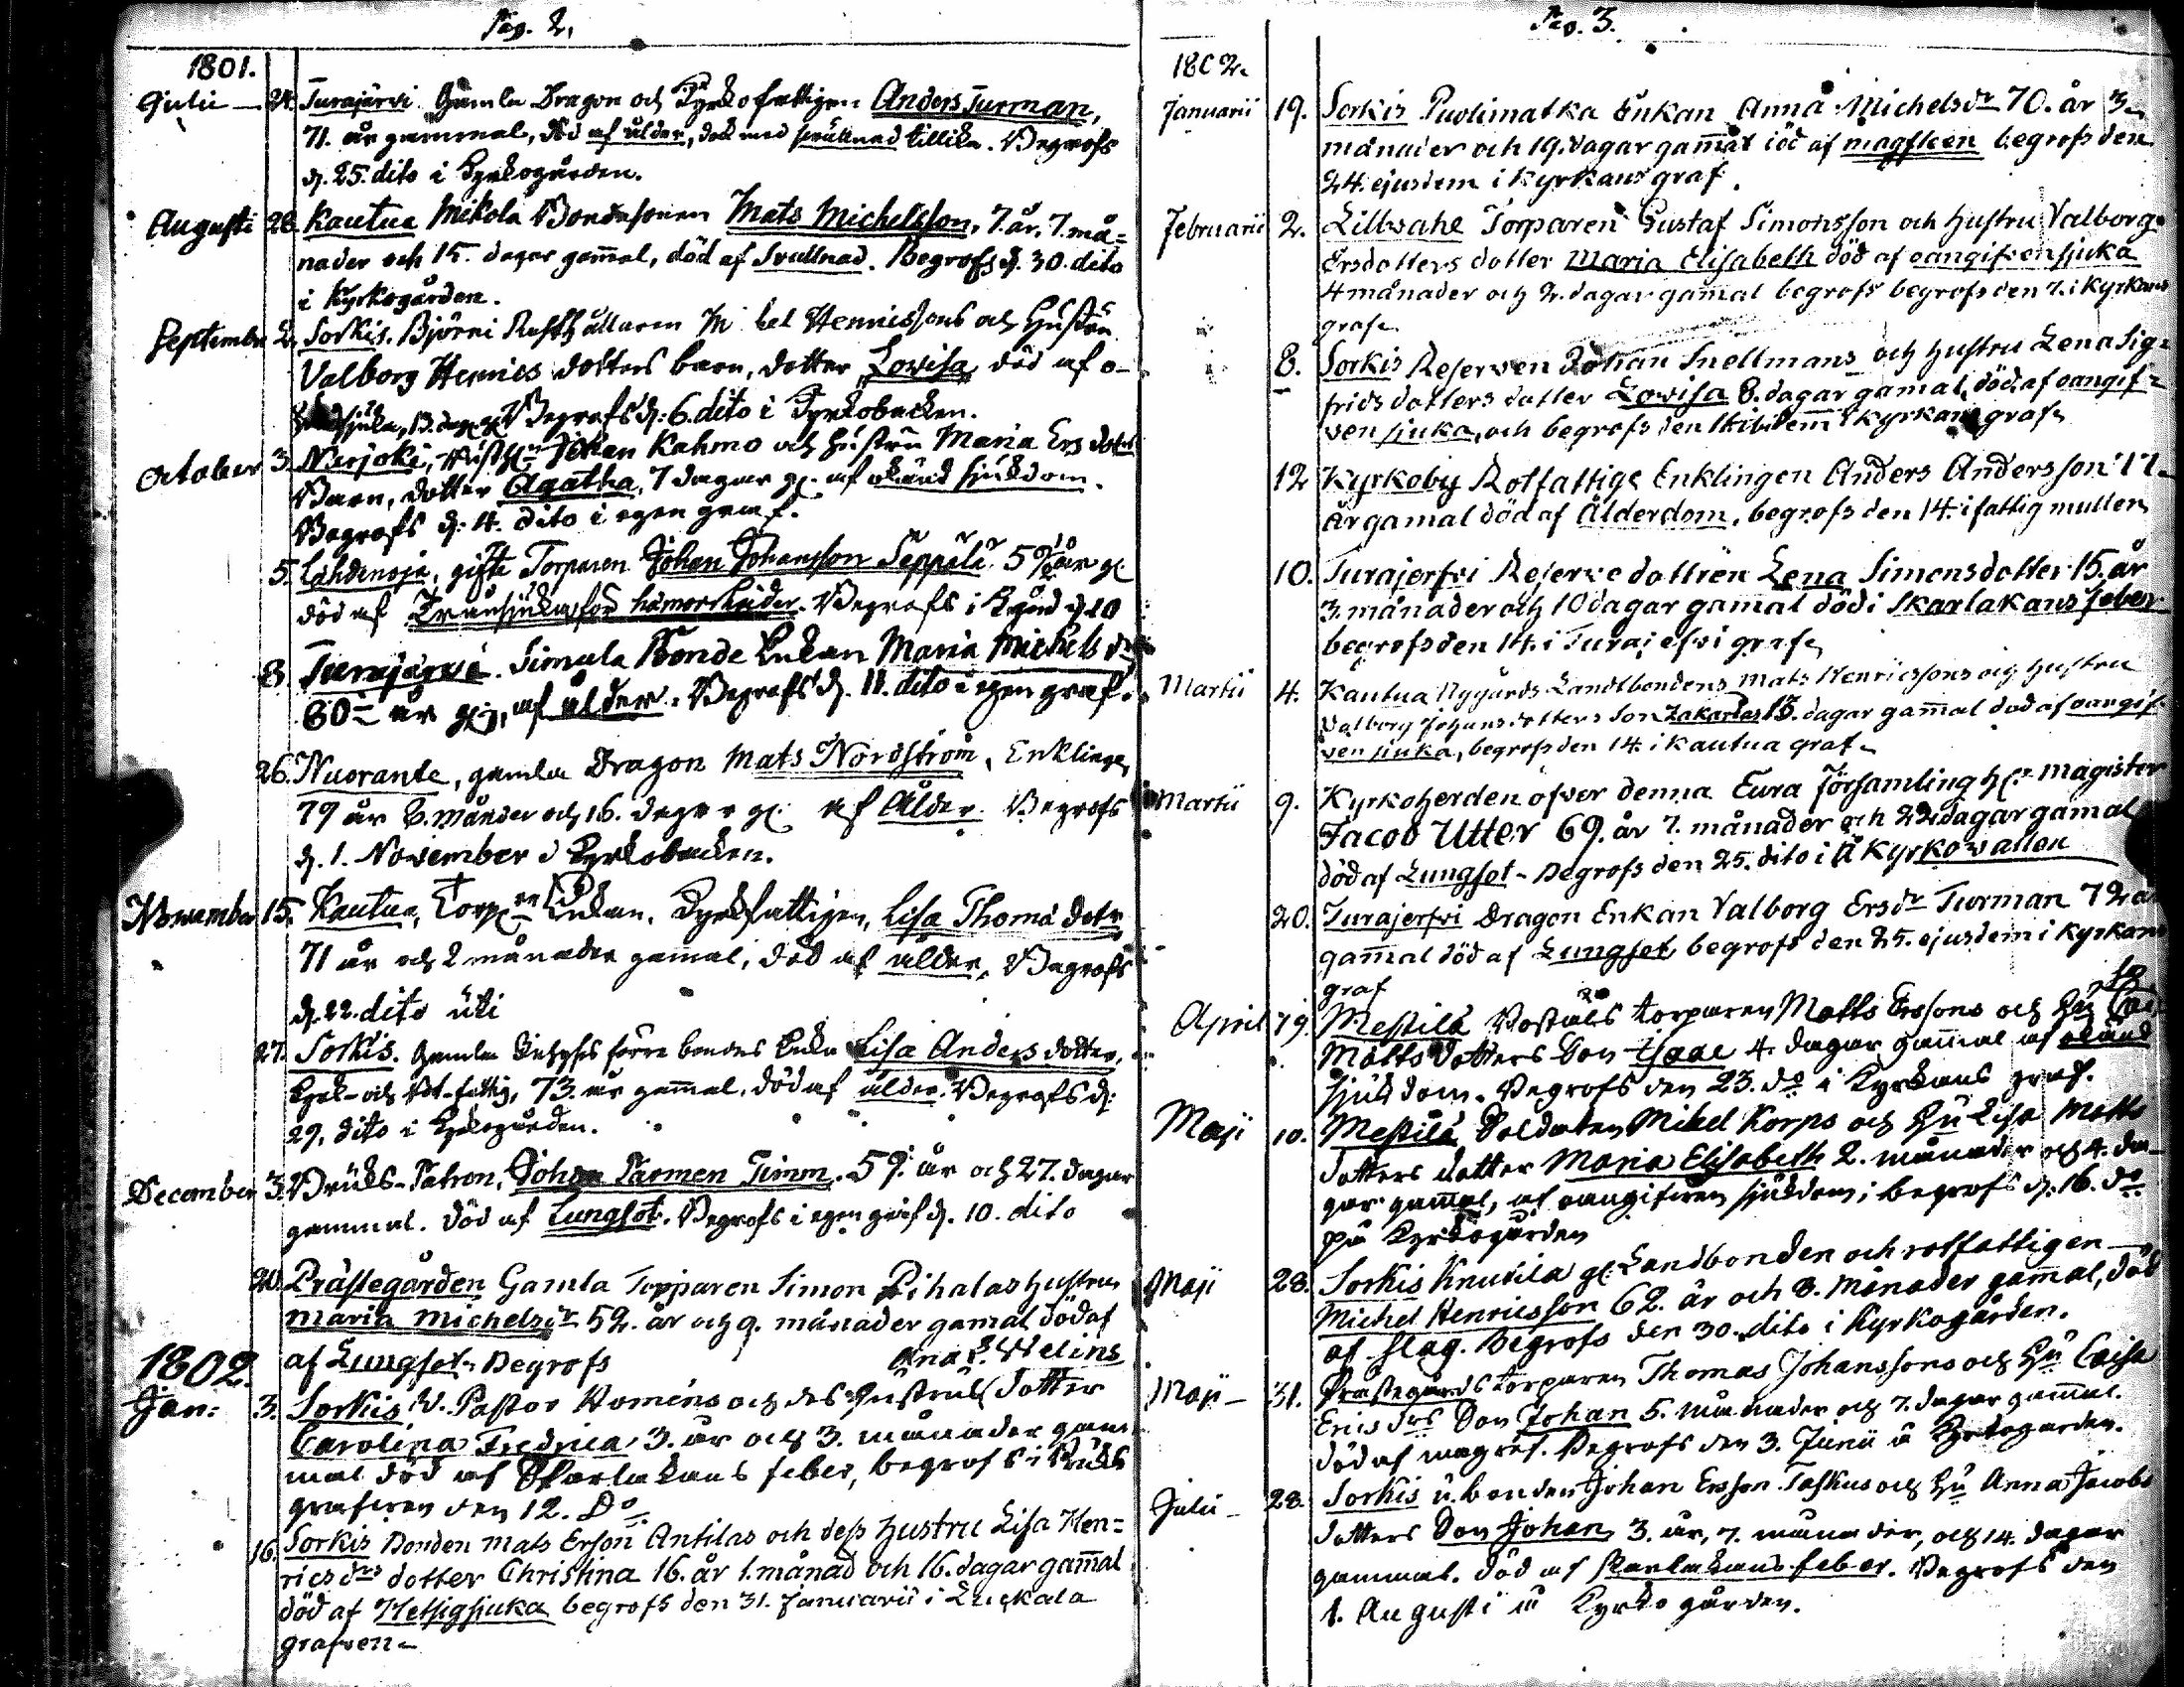 Pag. 2.
1801.
Julii — 24. Turajärvi Gamla Dragon och Kyrkofattigen Anders Turman,
71. år gammal, död af ålder, dock med svullnad tillika. Begrofs
d. 25. dito i Kyrkogården.
Augusti 28. Kautua Mikola Bondesonen Mats Michelsson, 7. år, 7. må=
nader och 15. dagar gam̄al, död af Svullnad. Begrofs d. 30. dito
i Kyrkogården.
September 2. Sorkis. Björni Rusthållaren Henricssons och Hustru
Valborg Henrics dotters barn, dotter Lovisa, död af o-
sjuka, 13. dag. gl. Begrofs d: 6. dito i Kyrkobacken.
October 3. Naarjoki, Johan Kahmo och hustru Maria Ers dotters
Barn, dotter Agatha, 7 dagar gl. af okänd sjukdom.
Begrofs d. 4. dito i egen graf.
5. Lähdenoja, gifte Torparen Johan Johansson Seppälä, 59 år gl
död af Begrofs i Kgård d. 10
8. Turajärvi. Simula Bonde Enkan Maria Michels dr
80 år gl., af ålder. Begrofs d. 11. dito i egen graf.
26. Nuorante, gamla Dragon Mats Nordström, Enkling,
79 år 8. månader och 16. dagar gl. af Ålder. Begrofs
d. 1. November i Kyrkobacken.
Novembr 15. Kautua, Torp. en Enkan, Kyrkfattigen, Lisa Thomæ dotr
71 år och 2 månader gamal, död af ålder, Begrofs
d. 22. dito uti
27. Sorkis. Gamla förre bondes Enka Lisa Anders dotter,
Kyrk- och Rot-fattig, 73. år gam̄al, död af ålder. Begrofs d:
29. dito i Kyrkogården.
December 3. Bruks-Patron, Johan Parmen Timm. 59. år och 27. dagar
gammal. död af Lungsot. Begrofs i egen graf d. 10. dito
20. Prästegården Gamla Torparen Simon Pihalas hustru
Maria Michelsdr 52. år och 9. månader gamal död af
af Lungsot. Begrofs
1802. Ana B. Welins
Jan: 3. Sorkis V. Pastor Homéns och des Hustrus dotter
Carolina Fredrica 3. år och 3. månader gam
mal död af Skarlakans feber, begrofs i Bruks
grafven den 12. Do
16. Sorkis Bonden Mats Erson Antilas och dess hustru Lisa Hen=
rics drs dotter Christina 16. år 1. månad och 16. dagar gam̄al
död af Hetsigsjuka begrofs den 31. Januarii i Luckala
grafven
Pag. 3.
1802.
Januarii 19. Sorkis Puolimatka Enkan Anna Michelsdr 70. år 3
månader och 19. dagar gam̄al död af magsteen begrofs den
24. ejusdem i kyrkans graf.
Februarii 2. Lillwahe Torparen Gustaf Simonsson och hustru Valborg
Ersdotters dotter Maria Elisabeth död af oangifven sjuka
4 månader och 2. dagar gamal begrofs begrofs den 7. i kyrkans
graf
8. Sorkis Reserven Johan Snellmans och hustru Lena Sig=
frids dotters dotter Lovisa 8. dagar gamal, död af oangif=
ven sjuka, och begrofs den 14 ibidem i kyrkans graf
12 Kyrkoby Rotfattige Enklingen Anders Andersson 77
år gamal död af Ålderdom, begrofs den 14. i fattig mullen
10. Turajerfvi Reserve dottren Lena Simonsdotter 15. år
3. månader och 10 dagar gamal död i Skarlakans feber
begrofs den 14. i Turajerfvi graf
Martii 4. Kautua Nygårds Landtbondens Mats Henricssons och hustru
Valborg Johansdotters Son Zakarias 13. dagar gam̄al död af oangif-
ven sjuka, begrofs den 14. i Kautua graf
Martii 9. Kyrkoherden öfver denna Eura Församling hr magister
Jacob Utter 69. år 7. månader och 22 dagar gamal
död af Lungsot. Begrofs den 25. dito i å Kyrkovallen
20. Turajerfvi Dragon Enkan Valborg Ersdr Turman 72 å
gam̄al död af Lungsot begrofs den 25. ejusdem i Kyrkans
graf
April 19. Mestilä torparen Matts Ersons och Hu
Matts dotters Son Isaac 4. dagar gam̄al af okänd
sjukdom. Begrofs den 23. do i Kyrkans graf.
Maji 10. Mestilä Soldaten Mikel Korps och Hu Lisa Matts
dotters dotter Maria Elisabeth 2. månader och 4. da-
gar gam̄al, af oangifven sjukdom; begrofs d. 16. do
på Kyrkogården
Maji 28. Sorkis Knuutila gl. Landbonden och rotfattigen
Michel Henricsson 62. år och 8. månader gamal, död
af slag. Begrofs den 30. dito i Kyrkogården.
Maji — 31. Prästegårds torparen Thomas Johanssons och Hu Caisa
Erics drs Son Johan 5. månader och 7. dagar gam̄al.
död af magref. Begrofs den 3. Junii å Kyrkogården.
Julii — 28. Sorkis u. bonden Johan Ersson Taskus och Hu Anna Jacobs
dotters Son Johan 3. år, 7. månader, och 14. dagar
gammal. död af skarlakans feber. Begrofs den
1. Augusti å Kyrko gården.